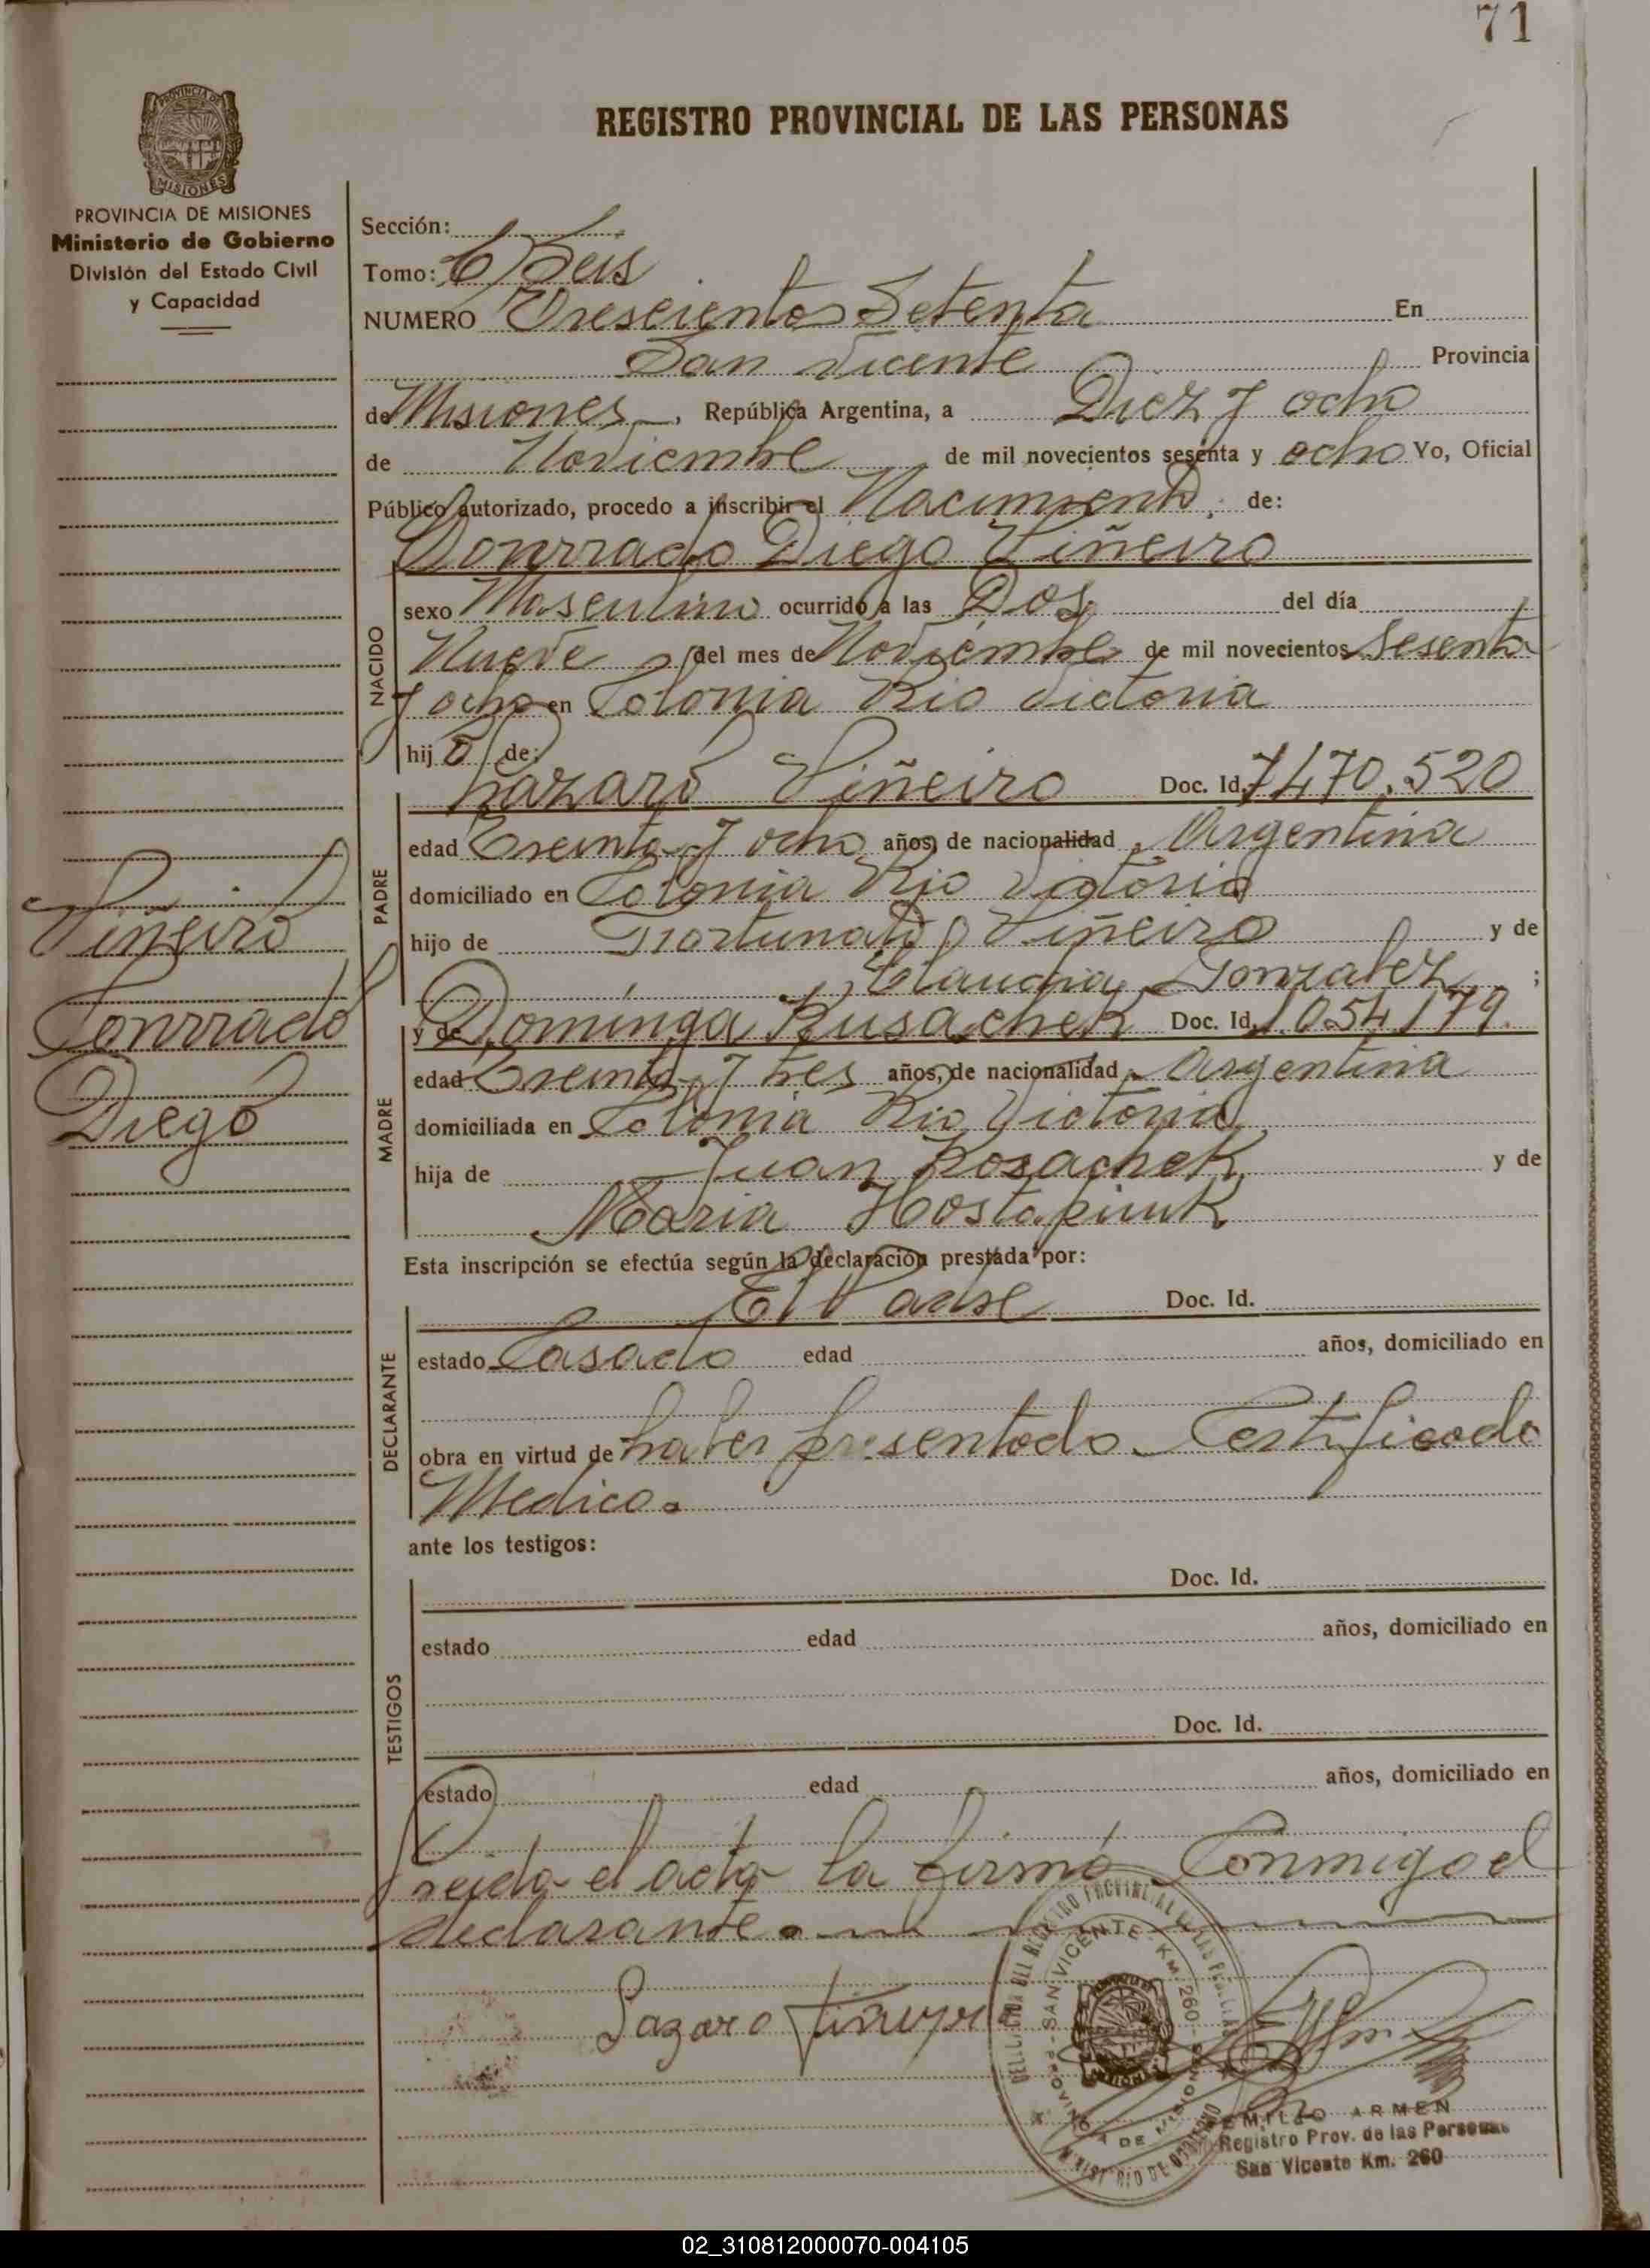 71
REGISTRO PROVINCIAL DE LAS PERSONAS
PROVINCIA DE MISIONES
Ministerio de Gobierno
División del Estado Civil
y Capacidad
Sección:
Tomo: 6 / Seis
NUMERO Trescientos Setenta En
San Vicente Provincia
de Misiones, República Argentina, a Diez y ocho
de Noviembre de mil novecientos sesenta y ocho Yo, Oficial
Público autorizado, procedo a inscribir el Nacimiento, de:
Conrrado Diego Viñeiro
NACIDO
sexo Masculino ocurrido a las Dos del día
Nueve del mes de Noviembre de mil novecientos Sesenta
y ocho en Colonia Rio Victoria
hijo de:
Lazaro Viñeiro Doc. Id. 7470.520
PADRE
edad Treinta y ocho años, de nacionalidad Argentina
domiciliado en Colonia Rio Victoria
hijo de Fortunato Viñeiro y de
Claudia Gonzalez ;
y de Dominga Rusachek Doc. Id. 1.054179.
MADRE
edad Treinta y tres años, de nacionalidad Argentina
domiciliada en Colonia Rio Victoria
hija de Juan Rosachek y de
Maria Hostapiuk
Viñeiro
Conrrado
Diego
Esta inscripción se efectúa según la declaración prestada por:
El Padre Doc. Id.
DECLARANTE
estado Casado edad años, domiciliado en
obra en virtud de haber presentado Certificado
Medico.
ante los testigos:
Doc. Id.
TESTIGOS
estado edad años, domiciliado en
Doc. Id.
estado edad años, domiciliado en
Leida el acta la firma Conmigo el
declarante.
Lazaro
DELEGACION DEL REGISTRO PROVINCIAL DE LAS PERSONAS
SAN VICENTE - KM. 260 -
PROVINCIA DE MISIONES
MINISTERIO DE GOBIERNO
EMILIO ARMEN
Registro Prov. de las Personas
San Vicente Km. 260
02_310812000070-004105